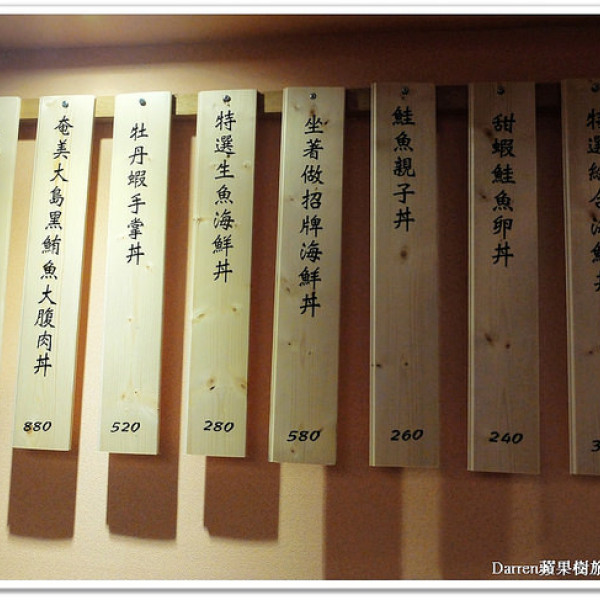 奄美大島黑鮪魚大腹肉丼
880
牡丹蝦手掌丼
520
特選生魚海鮮丼
280
坐著做招牌海鮮丼
580
鮭魚親子丼
260
甜蝦鮭魚卵丼
240
特選綜合海鮮丼
3
Darren蘋果樹旅